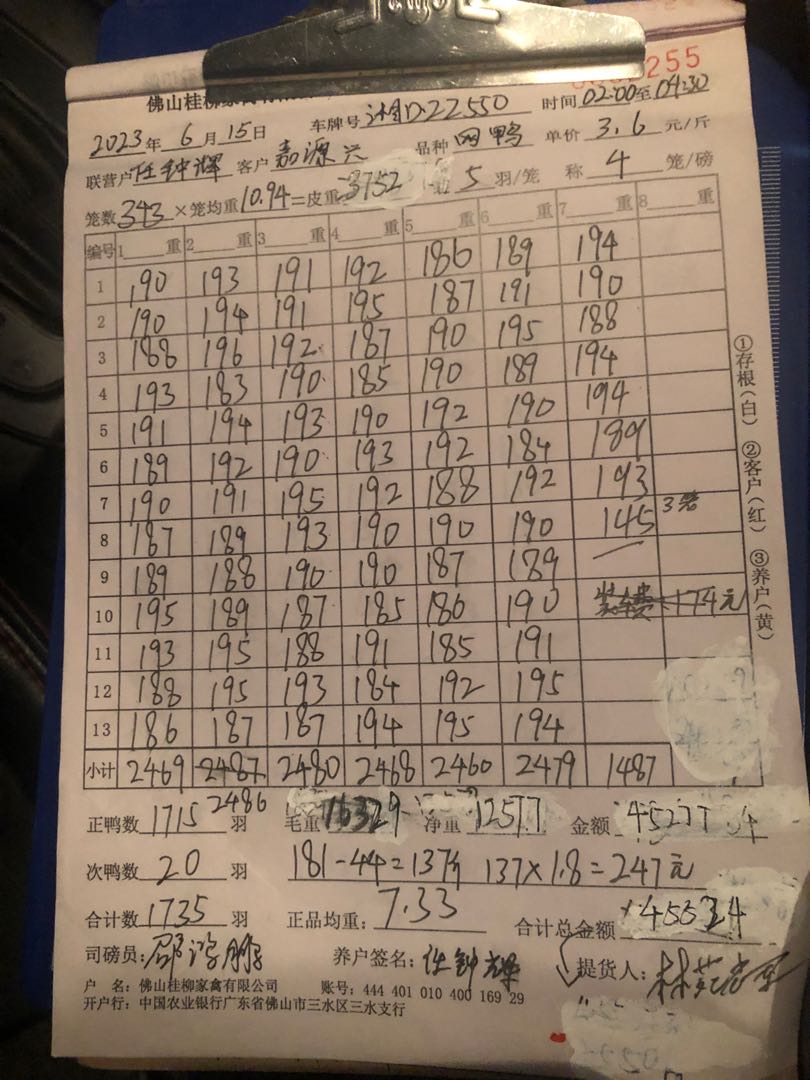 255
佛山桂柳家禽有
2023年6月15日 车牌号 湘D22550 时间 02:00至04:30
联营户 任钟辉 客户 嘉源兴 品种 网鸭 单价 3.6 元/斤
笼数 343 ×笼均重 10.94 =皮重 3752 5 羽/笼 称 4 笼/磅
编号 1 重 2 重 3 重 4 重 5 重 6 重 7 重 8 重
1 190 193 191 192 186 189 194
2 190 194 191 195 187 191 190
3 188 196 192 187 190 195 188
4 193 183 190 185 190 189 194
5 191 194 193 190 192 190 194
6 189 192 190 193 192 184 189
7 190 191 195 192 188 192 193
8 187 189 193 190 190 190 145 3笼
9 189 188 190 190 187 189
10 195 189 187 185 186 190 装车费 174元
11 193 195 188 191 185 191
12 188 195 193 184 192 195
13 186 187 187 194 195 194
小计 2469 2487 2480 2468 2460 2479 1487
2486
正鸭数 1715 羽 毛重 16329 净重 12577 金额 45277
次鸭数 20 羽 181-44=137斤 137×1.8=247元
合计数 1735 羽 正品均重: 7.33 合计总金额 45524
司磅员: 养户签名: 任钟辉 提货人:
户 名: 佛山桂柳家禽有限公司 账号: 444 401 010 400 169 29
开户行: 中国农业银行广东省佛山市三水区三水支行
①存根(白) ②客户(红) ③养户(黄)